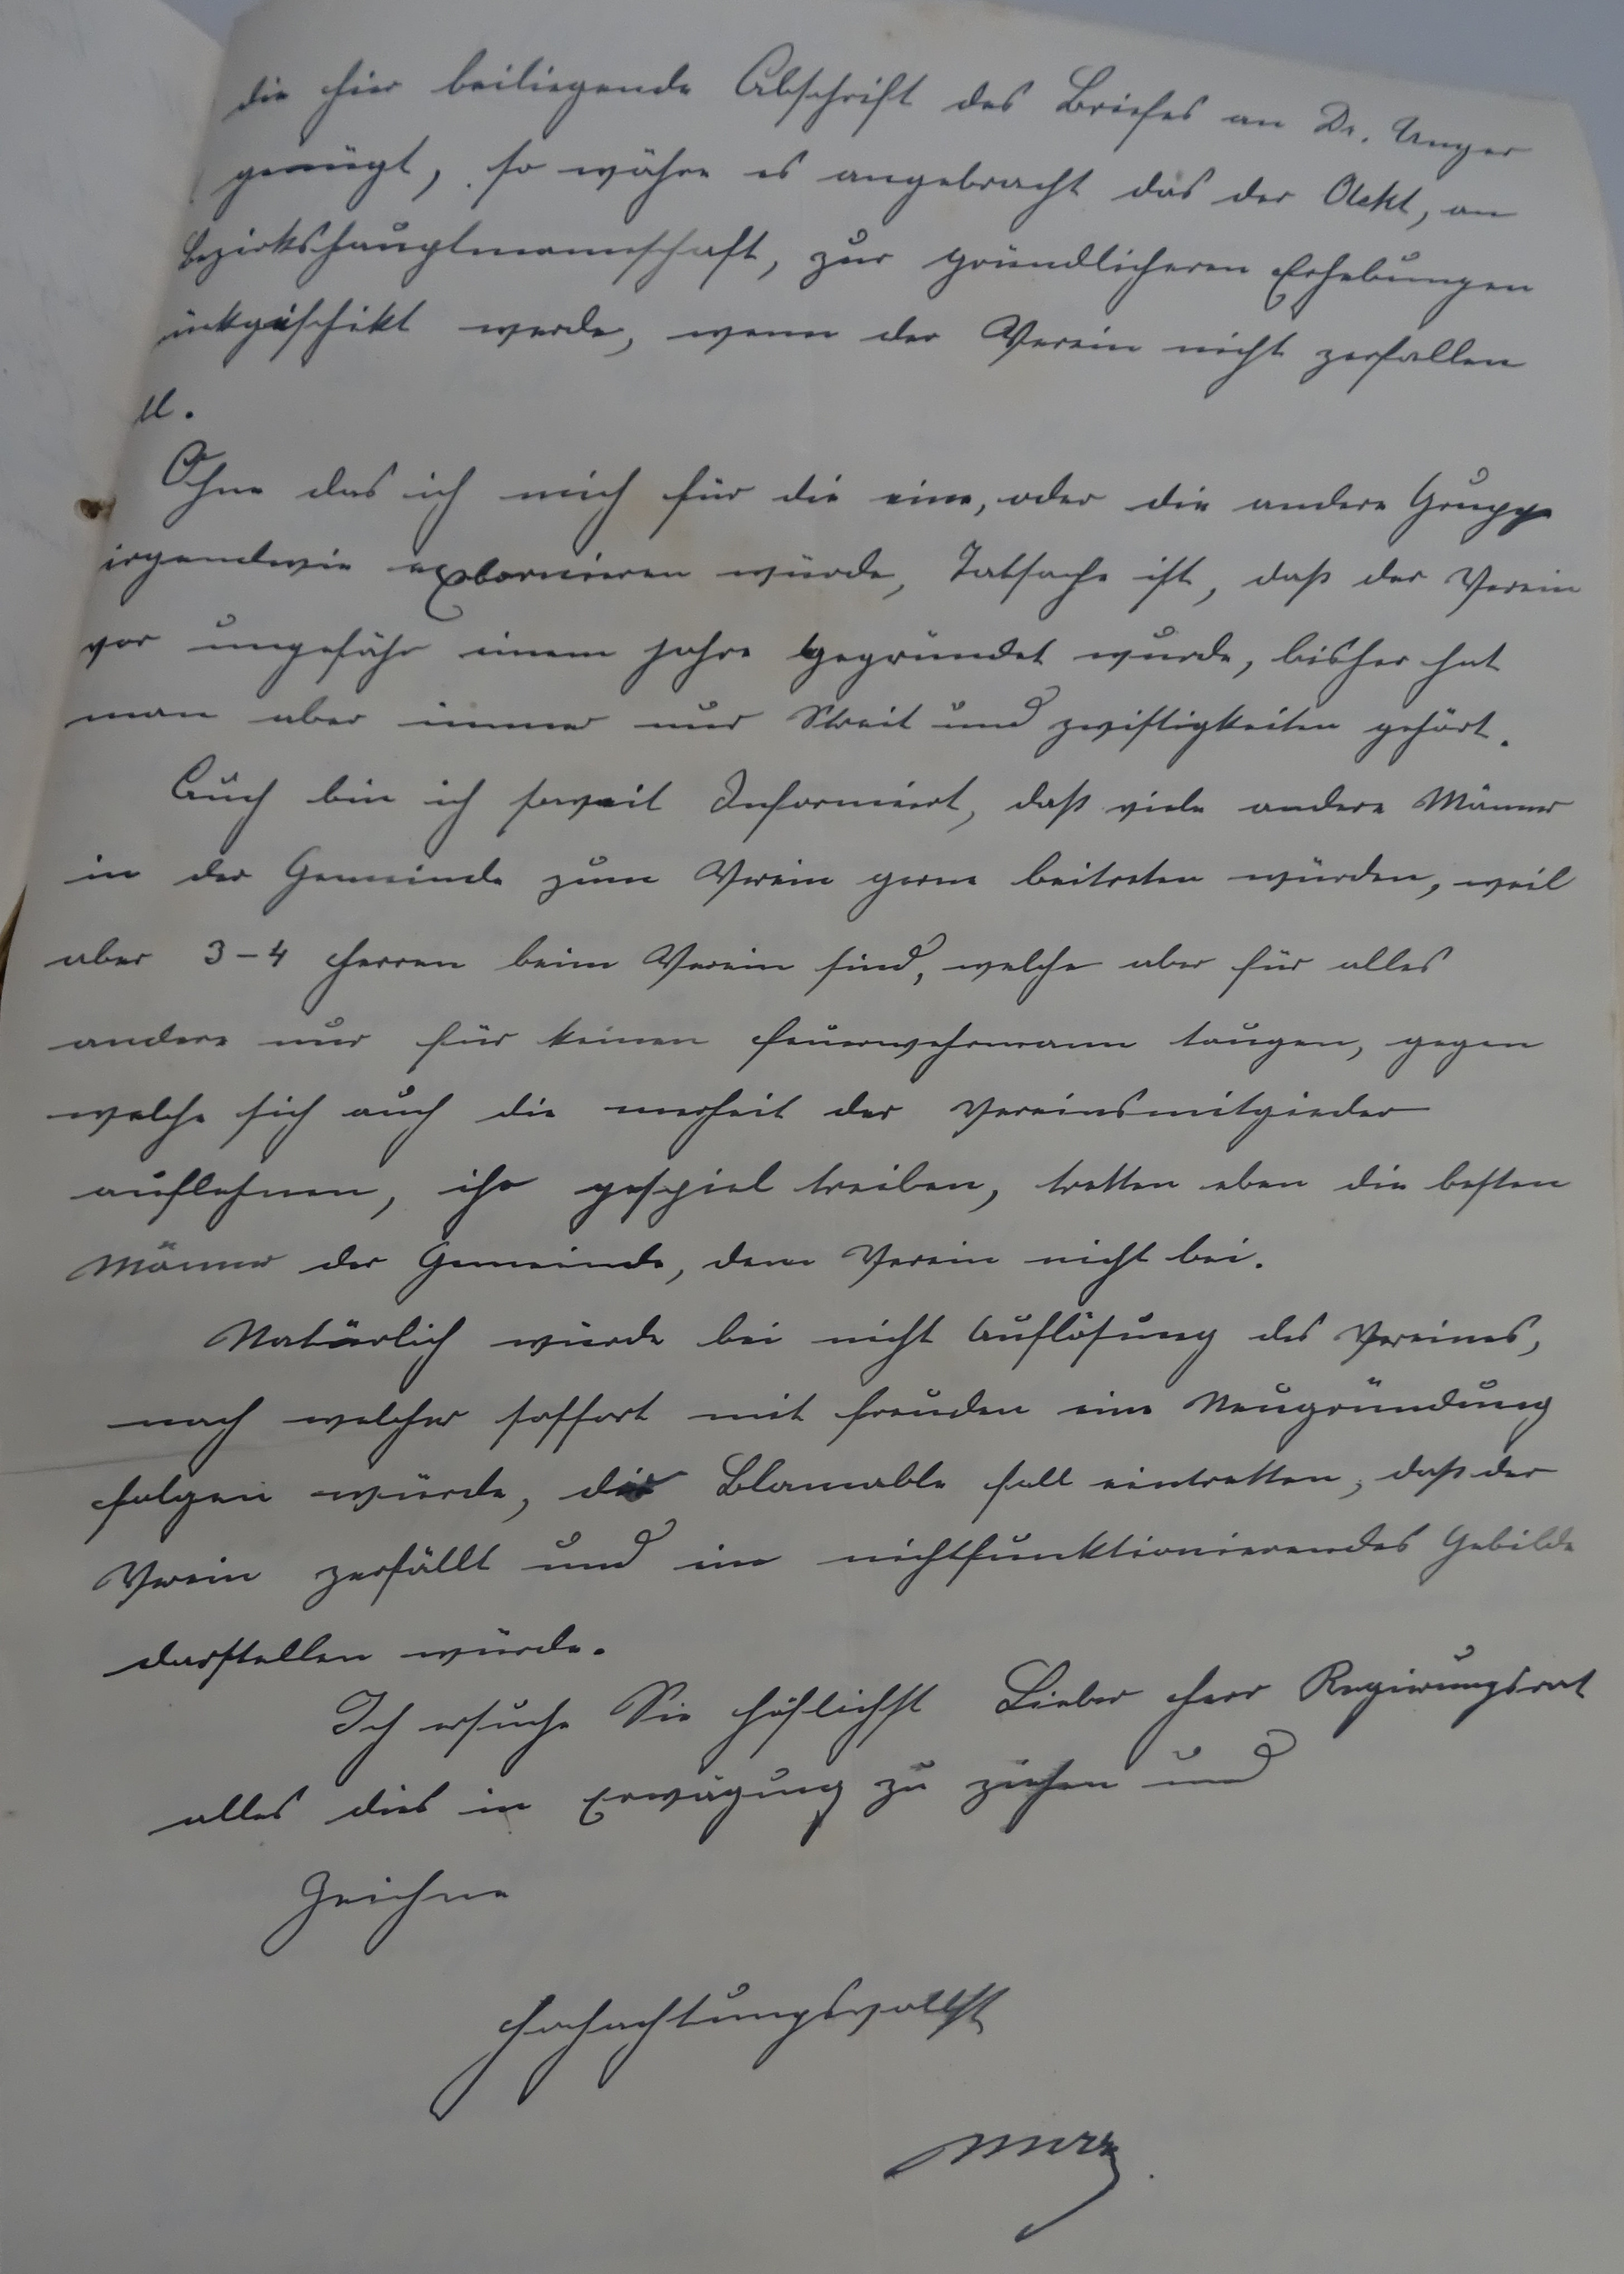 die hier beiliegende Abschrift des Briefes an Dr. Unger
genügt, so währe es angebracht das der Ackt, an
Bezirkshauptmannschaft, zur gründlicheren Erhebungen
ückgeschikt werde, wenn der Verein nicht zerfallen
ll.
Ohne das ich mich für die eine, oder die andere Gruppe
irgendwie würde, Tatsache ist, daß der Verein
vor ungefähr einem jahre gegründet wurde, bisher hat
man aber immer nur Streit und zwistigkeiten gehört.
Auch bin ich soweit Informiert, daß viele andere Männer
in der Gemeinde zum Verein gerne beitreten würden, weil
aber 3-4 Herren beim Verein sind, welche aber für alles
andere nur für keinen Feuerwehrmann taugen, gegen
welche sich auch die merheit der Vereinsmitgieder
auflehnen, ihr gespiel treiben, tretten eben die besten
Männer der Gemeinde, dem Verein nicht bei.
Natürlich würde bei nicht Auflösung des Vereines,
nach welcher soffort mit freuden eine Neugründung
folgen würde, der Blamable fall eintretten, daß der
Verein zerfällt und ein nichtfunktionierendes Gebilde
darstellen würde.
Ich ersuche Sie höflichst Lieber Herr Regirungsrat
alles dies in Erwägung zu ziehen und
Zeichne
Hochachtungsvollst